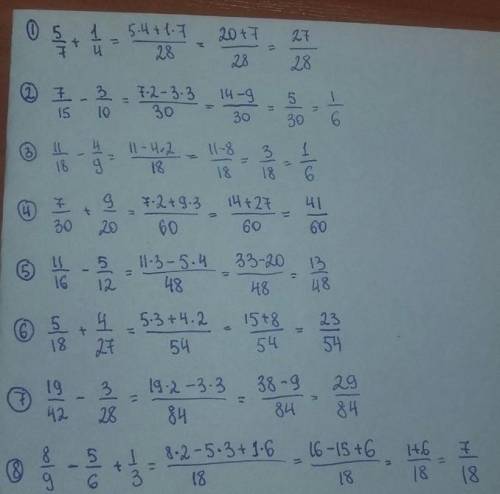 ① 5/7 + 1/4 = (5·4+1·7)/28 = (20+7)/28 = 27/28
② 7/15 − 3/10 = (7·2−3·3)/30 = (14−9)/30 = 5/30 = 1/6
③ 11/18 − 4/9 = (11−4·2)/18 = (11−8)/18 = 3/18 = 1/6
④ 7/30 + 9/20 = (7·2+9·3)/60 = (14+27)/60 = 41/60
⑤ 11/16 − 5/12 = (11·3−5·4)/48 = (33−20)/48 = 13/48
⑥ 5/18 + 4/27 = (5·3+4·2)/54 = (15+8)/54 = 23/54
⑦ 19/42 − 3/28 = (19·2−3·3)/84 = (38−9)/84 = 29/84
⑧ 8/9 − 5/6 + 1/3 = (8·2−5·3+1·6)/18 = (16−15+6)/18 = (1+6)/18 = 7/18